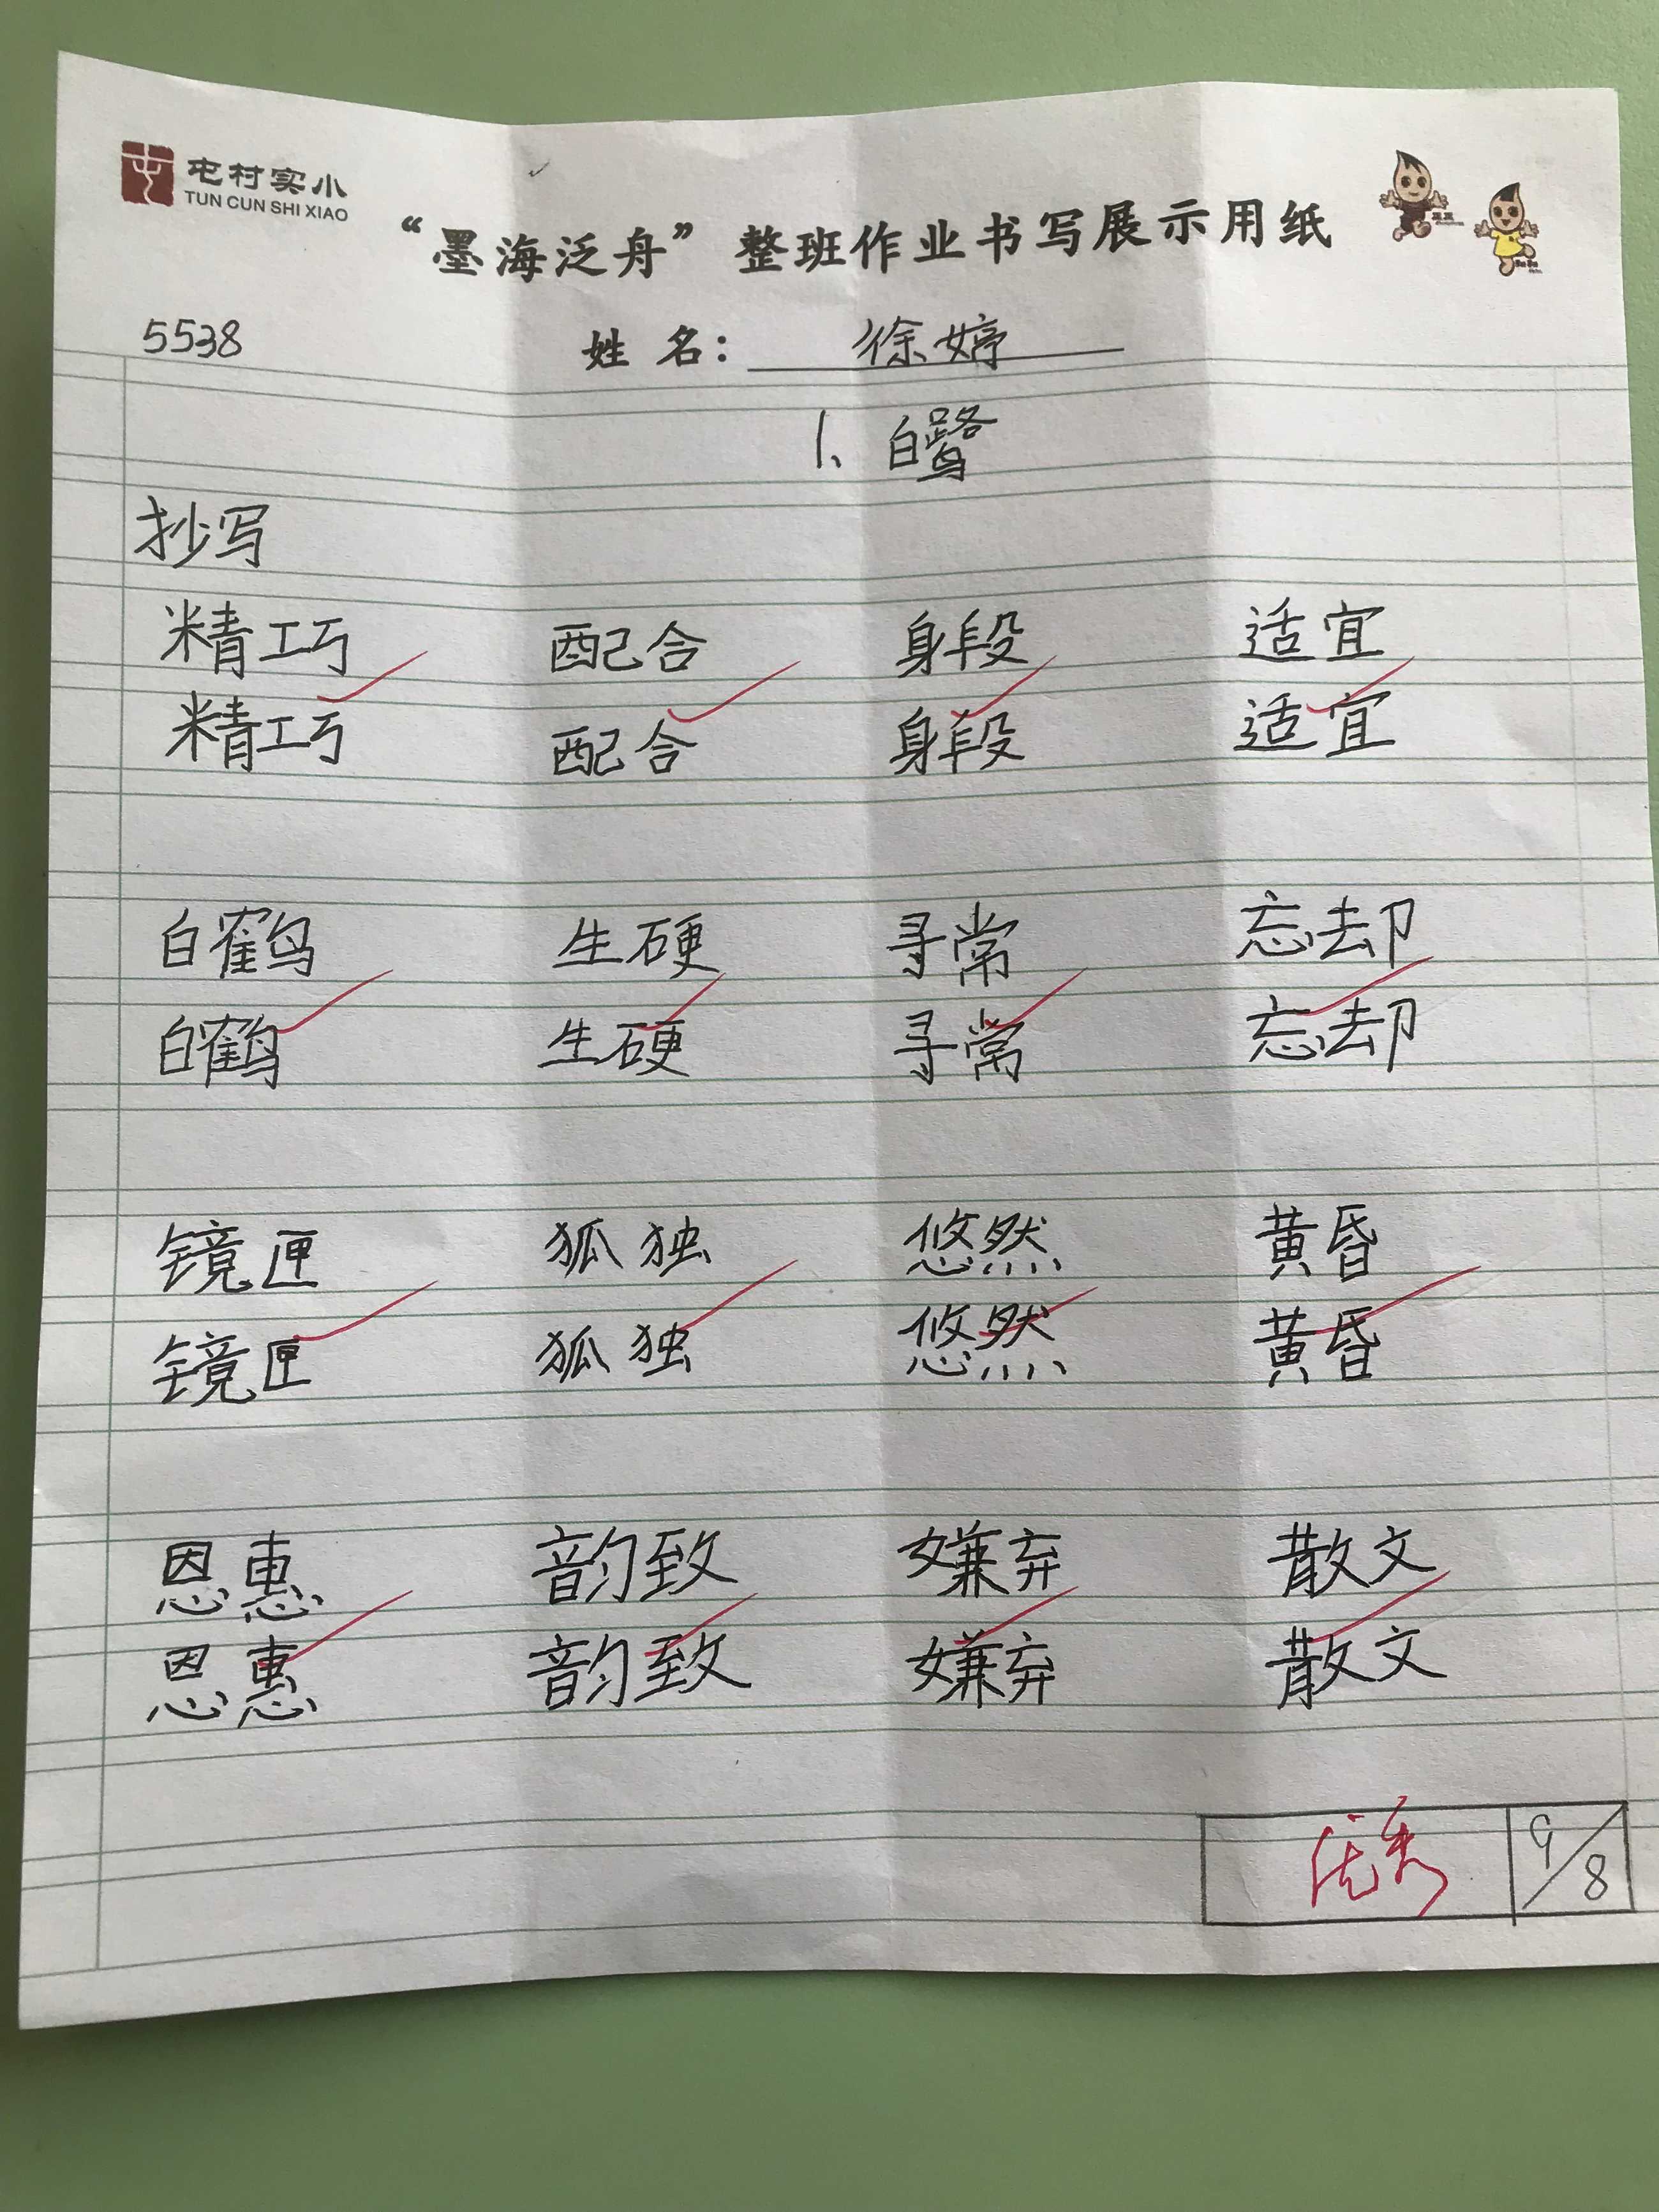 屯村实小
TUN CUN SHI XIAO
“墨海泛舟”整班作业书写展示用纸
5538 姓 名： 徐婷
1、白鹭
抄写
精巧 配合 身段 适宜
精巧 配合 身段 适宜
白鹤 生硬 寻常 忘却
白鹤 生硬 寻常 忘却
镜匣 孤独 悠然 黄昏
镜匣 孤独 悠然 黄昏
恩惠 韵致 嫌弃 散文
恩惠 韵致 嫌弃 散文
优秀 9/8